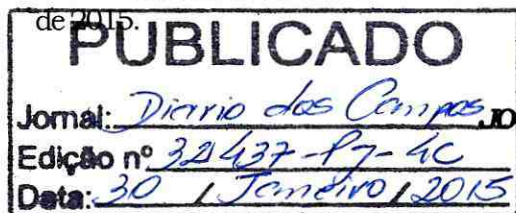 de 2015.
PUBLICADO
Jornal: Diario dos Campos
JO
Edição nº 32437-Pg-4C
Data: 30 / Janeiro / 2015